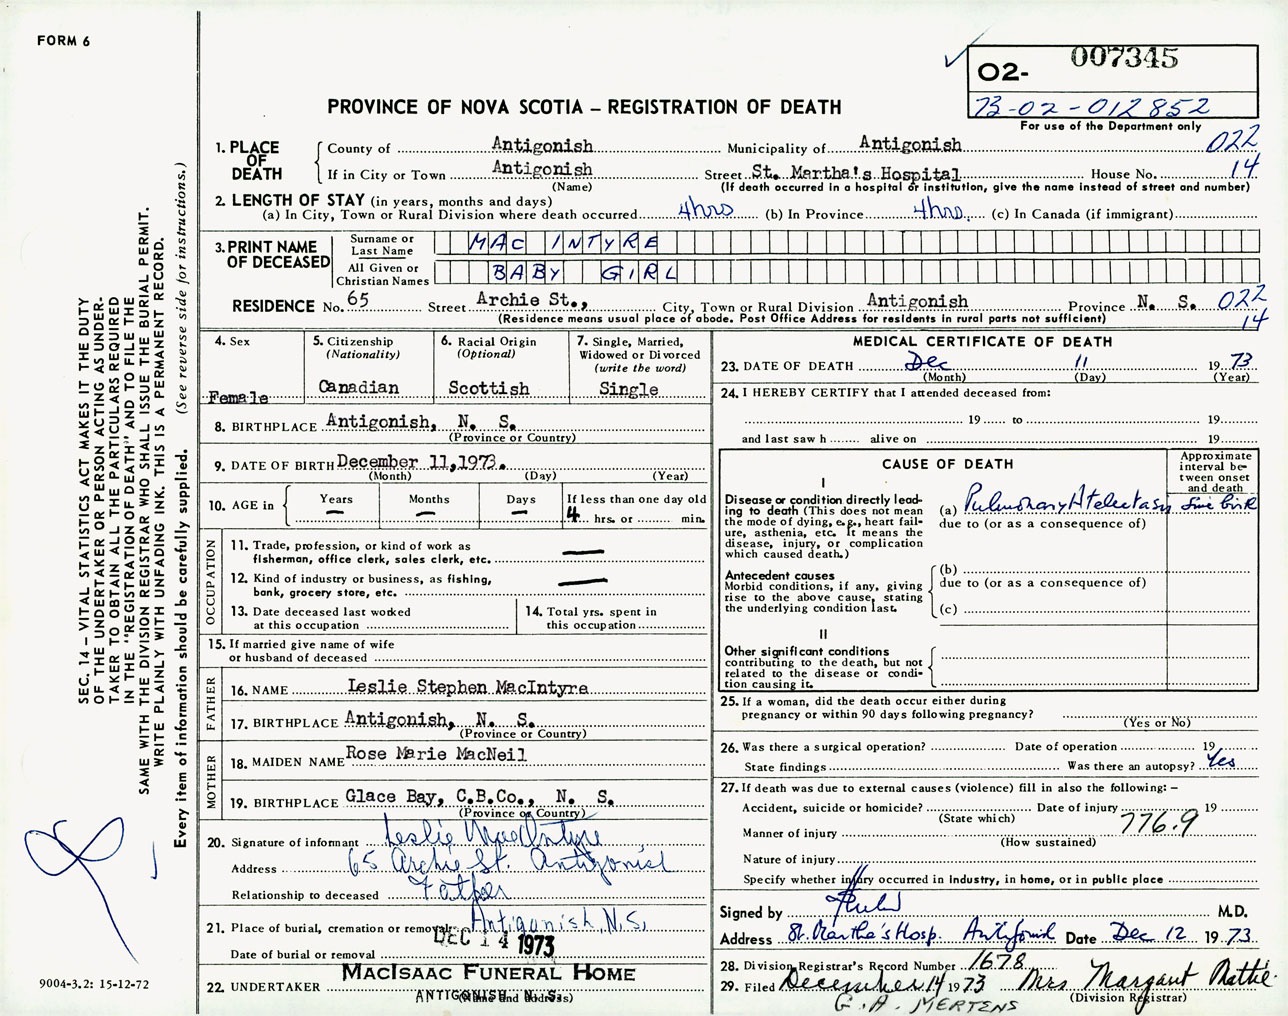 FORM 6
007345
O2-
73-02-012852
For use of the Department only
PROVINCE OF NOVA SCOTIA – REGISTRATION OF DEATH
SEC. 14 – VITAL STATISTICS ACT MAKES IT THE DUTY
OF THE UNDERTAKER OR PERSON ACTING AS UNDER-
TAKER TO OBTAIN ALL THE PARTICULARS REQUIRED
IN THE "REGISTRATION OF DEATH" AND TO FILE THE
SAME WITH THE DIVISION REGISTRAR WHO SHALL ISSUE THE BURIAL PERMIT.
WRITE PLAINLY WITH UNFADING INK. THIS IS A PERMANENT RECORD.
Every item of information should be carefully supplied. (See reverse side for instructions.)
1. PLACE OF DEATH
County of Antigonish Municipality of Antigonish 022
If in City or Town Antigonish Street St. Martha's Hospital House No. 14
(Name) (If death occurred in a hospital or institution, give the name instead of street and number)
2. LENGTH OF STAY (in years, months and days)
(a) In City, Town or Rural Division where death occurred 4hrs (b) In Province 4hrs. (c) In Canada (if immigrant)
3. PRINT NAME OF DECEASED
Surname or Last Name MAC INTYRE
All Given or Christian Names BABY GIRL
RESIDENCE No. 65 Street Archie St., City, Town or Rural Division Antigonish Province N. S. 022
(Residence means usual place of abode. Post Office Address for residents in rural parts not sufficient) 14
4. Sex
Female
5. Citizenship
(Nationality)
Canadian
6. Racial Origin
(Optional)
Scottish
7. Single, Married,
Widowed or Divorced
(write the word)
Single
8. BIRTHPLACE Antigonish, N. S.
(Province or Country)
9. DATE OF BIRTH December 11,1973.
(Month) (Day) (Year)
10. AGE in
Years Months Days If less than one day old
– – – 4 hrs. or min.
OCCUPATION
11. Trade, profession, or kind of work as
fisherman, office clerk, sales clerk, etc. —
12. Kind of industry or business, as fishing,
bank, grocery store, etc. —
13. Date deceased last worked
at this occupation
14. Total yrs. spent in
this occupation
15. If married give name of wife
or husband of deceased
FATHER
16. NAME Leslie Stephen MacIntyre
17. BIRTHPLACE Antigonish, N. S.
(Province or Country)
MOTHER
18. MAIDEN NAME Rose Marie MacNeil
19. BIRTHPLACE Glace Bay, C.B.Co., N. S.
(Province or Country)
20. Signature of informant Leslie MacIntyre
Address 65 Archie St. Antigonish
Relationship to deceased Father
21. Place of burial, cremation or removal Antigonish, N.S.
Date of burial or removal DEC 14 1973
22. UNDERTAKER MACISAAC FUNERAL HOME
ANTIGONISH, N. S.
(Name and address)
MEDICAL CERTIFICATE OF DEATH
23. DATE OF DEATH Dec 11 1973
(Month) (Day) (Year)
24. I HEREBY CERTIFY that I attended deceased from:
19 to 19
and last saw h alive on 19
CAUSE OF DEATH
Approximate
interval be-
tween onset
and death
I
Disease or condition directly lead-
ing to death (This does not mean
the mode of dying, e.g., heart fail-
ure, asthenia, etc. It means the
disease, injury, or complication
which caused death.)
(a) Pulmonary Atelectasis since birth
due to (or as a consequence of)
Antecedent causes
Morbid conditions, if any, giving
rise to the above cause, stating
the underlying condition last.
(b)
due to (or as a consequence of)
(c)
II
Other significant conditions
contributing to the death, but not
related to the disease or condi-
tion causing it.
25. If a woman, did the death occur either during
pregnancy or within 90 days following pregnancy?
(Yes or No)
26. Was there a surgical operation? Date of operation 19
State findings Was there an autopsy? Yes
27. If death was due to external causes (violence) fill in also the following: –
Accident, suicide or homicide? Date of injury 19
(State which)
776.9
Manner of injury
(How sustained)
Nature of injury
Specify whether injury occurred in industry, in home, or in public place
Signed by M.D.
Address St. Martha's Hosp. Antigonish Date Dec 12 1973
28. Division Registrar's Record Number 1678
29. Filed December 14 1973 Mrs Margaret
(Division Registrar)
G. A. MERTENS
9004-3.2: 15-12-72